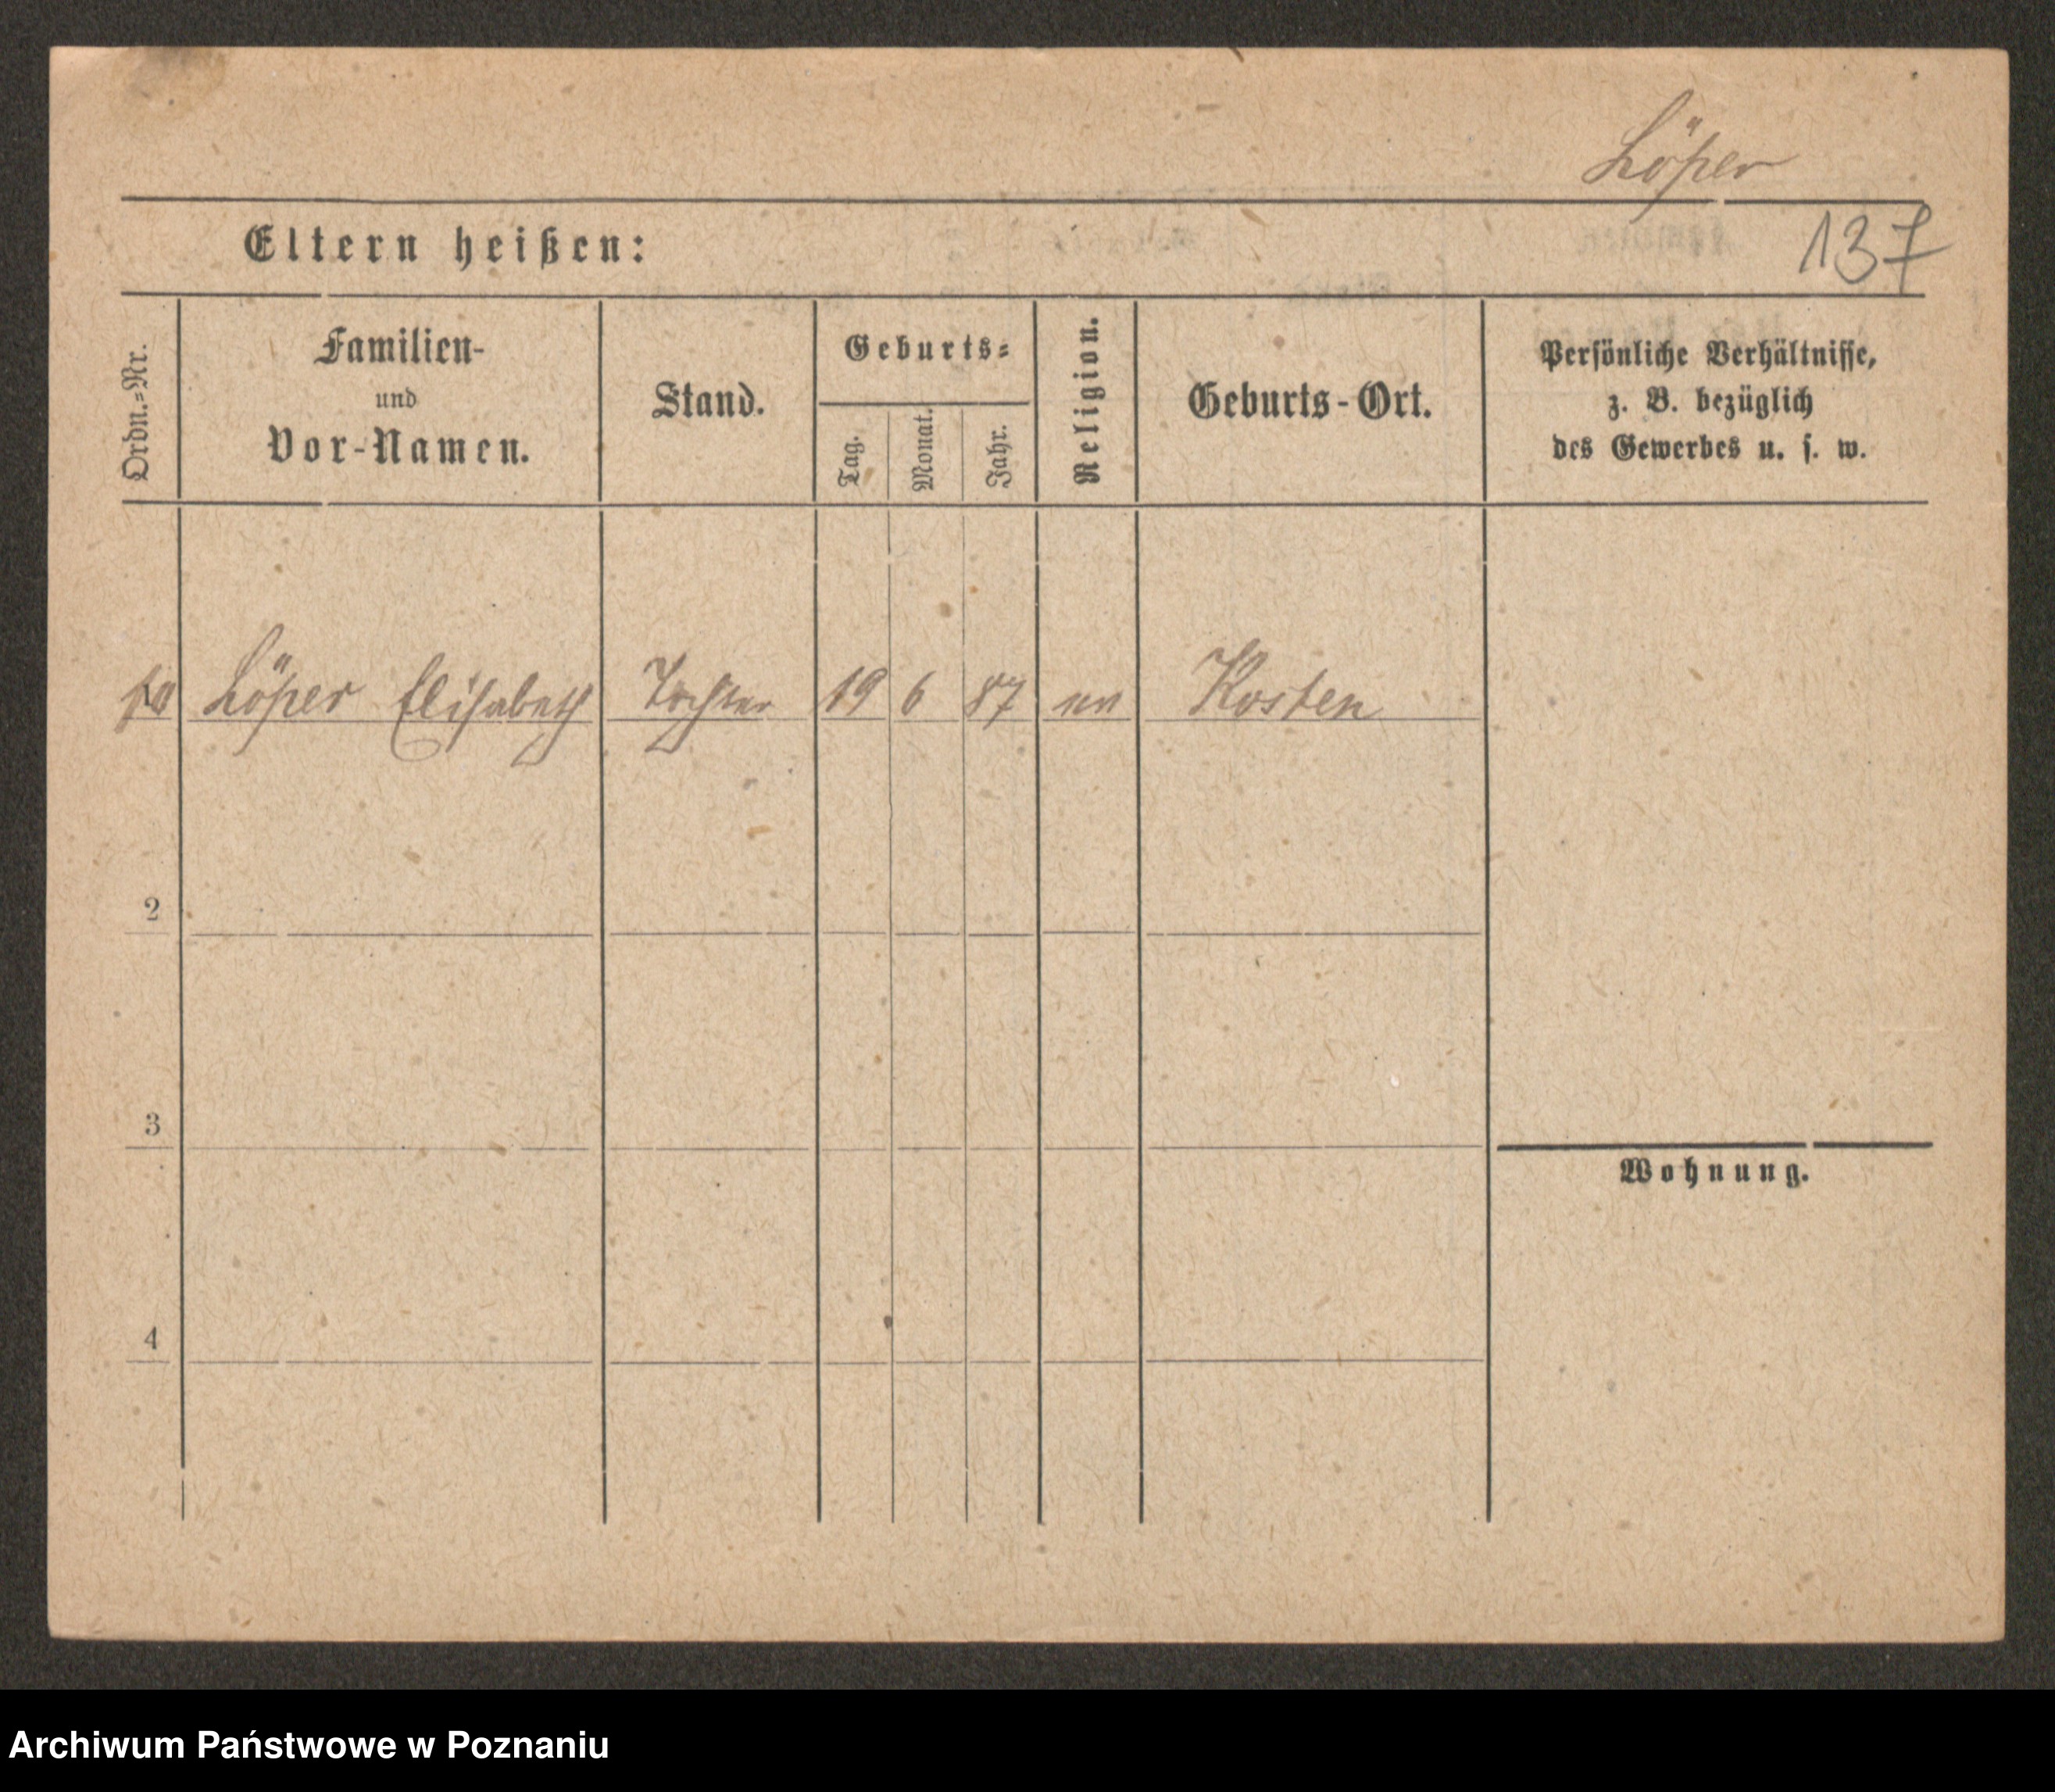 Löper
137
Eltern heißen:
Ordn.=Nr.
Familien-
und
Vor-Namen.
Stand.
Geburts=
Tag.
Monat.
Jahr.
Religion.
Geburts-Ort.
Persönliche Verhältnisse,
z. B. bezüglich
des Gewerbes u. s. w.
Löper Elisabeth Tochter 19 6 87 Kosten
2
3
Wohnung.
4
Archiwum Państwowe w Poznaniu